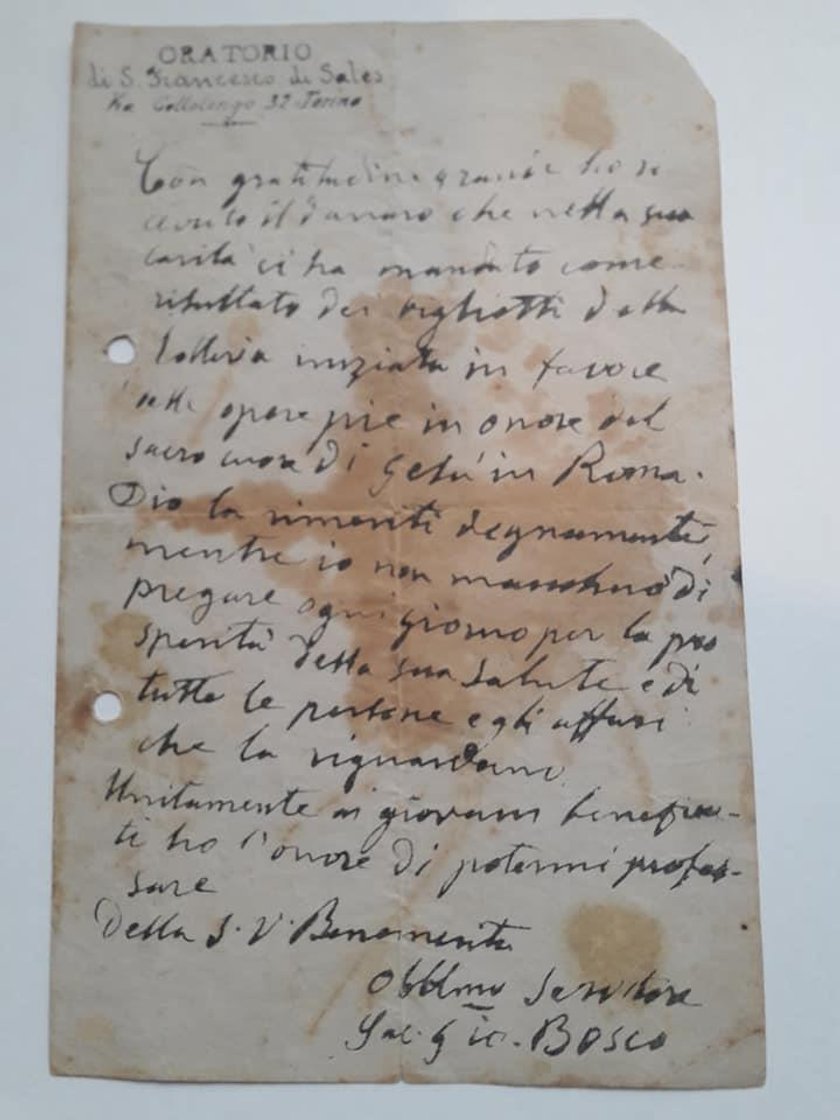 ORATORIO
di S. Francesco di Sales
Via Cottolengo 32-Torino
Con gratitudine grande ho ri
cevuto il danaro che nella sua
carità ci ha mandato come
risultato dei biglietti della
lotteria iniziata in favore
delle opere pie in onore del
sacro cuore di Gesù in Roma.
Dio la rimeriti degnamente,
mentre io non mancherò di
pregare ogni giorno per la pro
sperità della sua salute e di
tutte le persone e gli affari
che la riguardano.
Unitamente ai giovani benefica-
ti ho l'onore di potermi profes-
sare
Della S. V. Benemerita
Obblmo Servitore
Sac. Gio. Bosco